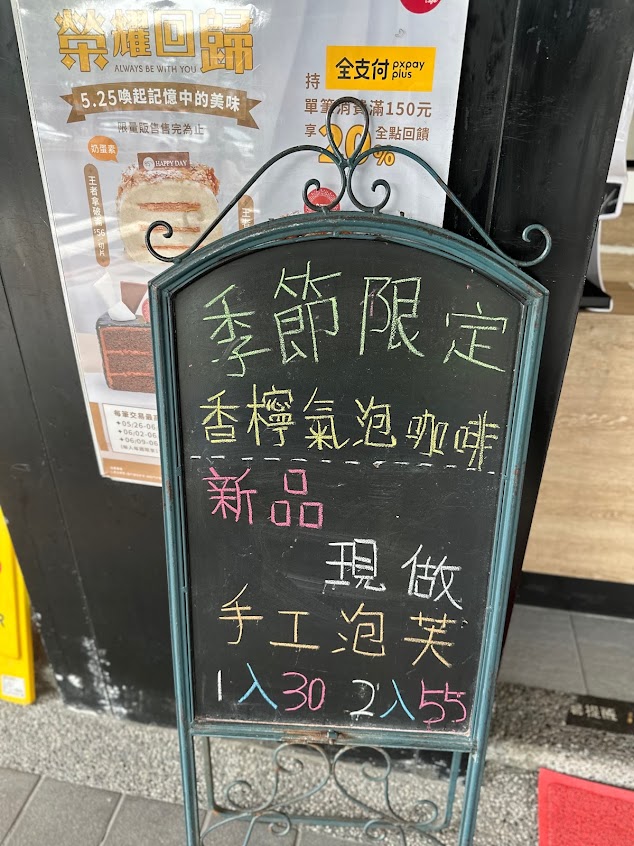 榮耀回歸
ALWAYS BE WITH YOU
5.25喚起記憶中的美味
限量販售售完為止
奶蛋素
HAPPY DAY
王者拿破
持 全支付 pxpay plus
單筆消費滿150元
享20%全點回饋
季節限定
香檸氣泡咖啡
新品
現做
手工泡芙
1入30 2入55
每筆交易最
+05/26-06
+06/02-06
+06/09-06